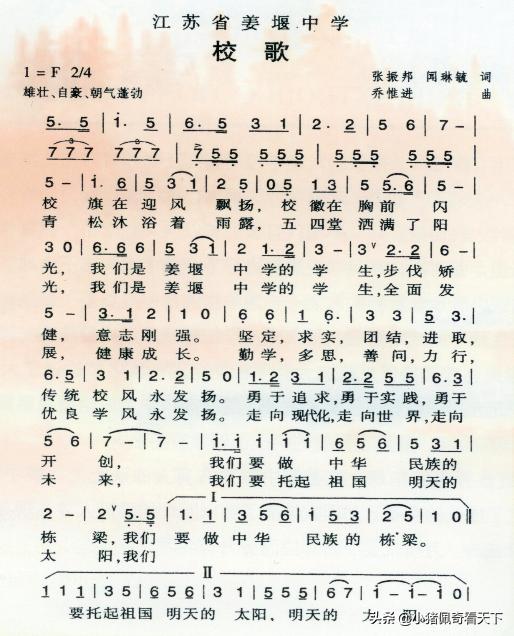 江苏省姜堰中学
校歌
1=F 2/4
张振邦 闻琳毓 词
雄壮、自豪、朝气蓬勃
乔惟进 曲
5. 5 | i. 5 | 6. 5 3 1 | 2. 2 | 5 6 | 7 - |
7 7 7 7 7 7 | 7 5 5 5 5 5 | 5 5 5 5 5 5 | 5 5 5 5 5 5 |
5 - | i. 6 | 5 3 1 | 2 5 | 0 5 1 3 | 5 5. 6 | 5 - |
校旗在迎风 飘扬, 校徽在胸前 闪
青松沐浴着 雨露, 五四堂洒满了阳
3 0 | 6. 6 6 | 5 3 1 | 2 1. 2 | 3 - | 3 ∨ 2. 2 | 6 - |
光, 我们是 姜堰 中学的 学 生,步伐 矫
光, 我们是 姜堰 中学的 学 生,全面 发
5 - | 3. 1 2 | 1 0 | 6 6 | 1 6. | 3 3 | 5 3. |
健, 意志刚 强。 坚定, 求实, 团结, 进取,
展, 健康成 长。 勤学, 多思, 善问, 力行,
6. 5 3 1 | 2. 2 | 5 0 | 1. 2 3 1 | 2. 2 5 5 | 6. 3 |
传统 校风 永发扬。 勇于 追求,勇于实践,勇于
优良 学风 永发扬。 走向 现代化,走向世界,走向
5 6 | 7 - | 7 - | i. i i | i i | 6 5 6 | 5 3 1 |
开创, 我们要 做 中华 民族的
未来, 我们要 托起 祖国 明天的
I
2 - | 2 ∨ 5. 5 | 1. 1 | 3 5 6 | i 5 3 | 2 5 | 1 0 ‖
栋 梁,我们 要 做 中华 民族的 栋梁。
太 阳,我们
II
1 1 1 | 3 5 | 6 5 6 | 3 1 2 | 5 5 | 5 5 5 | 6 7 | i - | i - | i 0 ‖
要托起 祖国 明天的 太阳, 明天的 太 阳。
头条 @小猪佩奇看天下